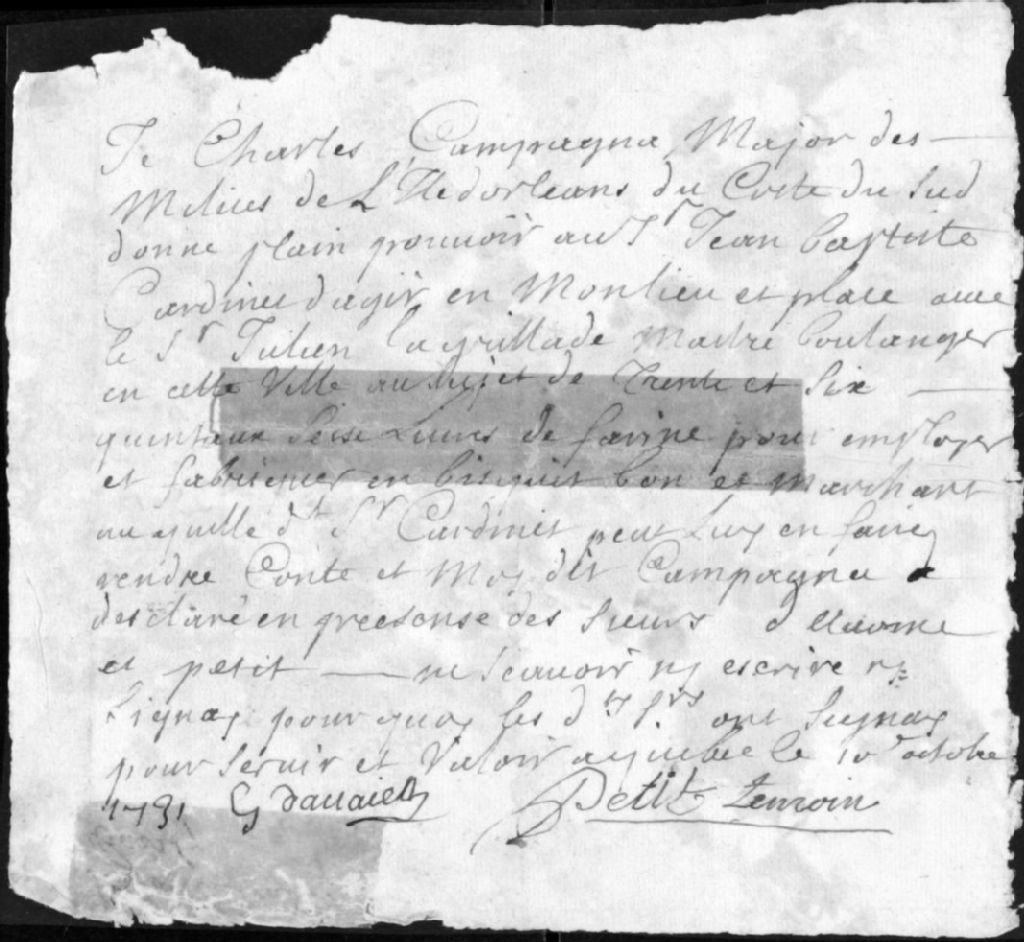 Je Charles Campagna Major des
Milices de L'Ile dorleans du Coste du Sud
donne plain pouvoir au Sr Jean baptiste
Cardinet dagir en Monlieu et place avec
le Sr Julien lagrillade Maitre boulanger
en cette Ville au sujet de Trente et Six
quintaux Seise Livres de farine pour employer
et fabriquer en bisquit bon et Marchant
au quelle dt Sr Cardinet peut Luy en faire
rendre Conte et Moy dit Campagna a
desclaré en preesense des Sieurs
et petit ne scauoir ny escrire ny
Signay pourquoy les dts Srs ont Signay
pour Seruir et Valoir aquebec le 10 octobre
1731 Petit Temoin